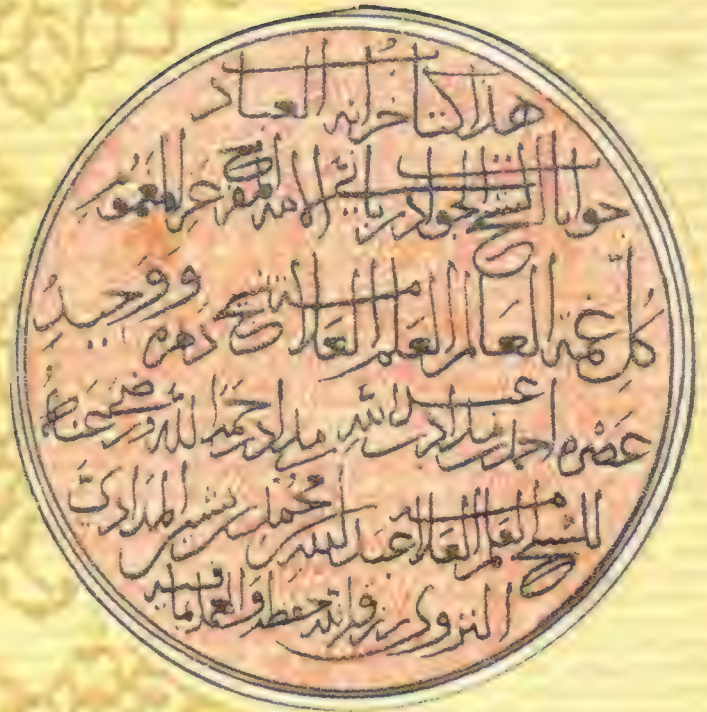 هذا كتاب خزانة العباد
جوابات الشيخ الجواد رباني الأمة المفرج عن المغموم
كل غمة العالم العلم العلامة شيخ دهره ووحيد
عصره احمد بن مداد بن عبد الله بن مداد رحمه الله ورضي عنه
للشيخ العالم العلامة عبد الله بن محمد بن بشير المدادي
النزوي رزقه الله حفظه والعمل بما فيه